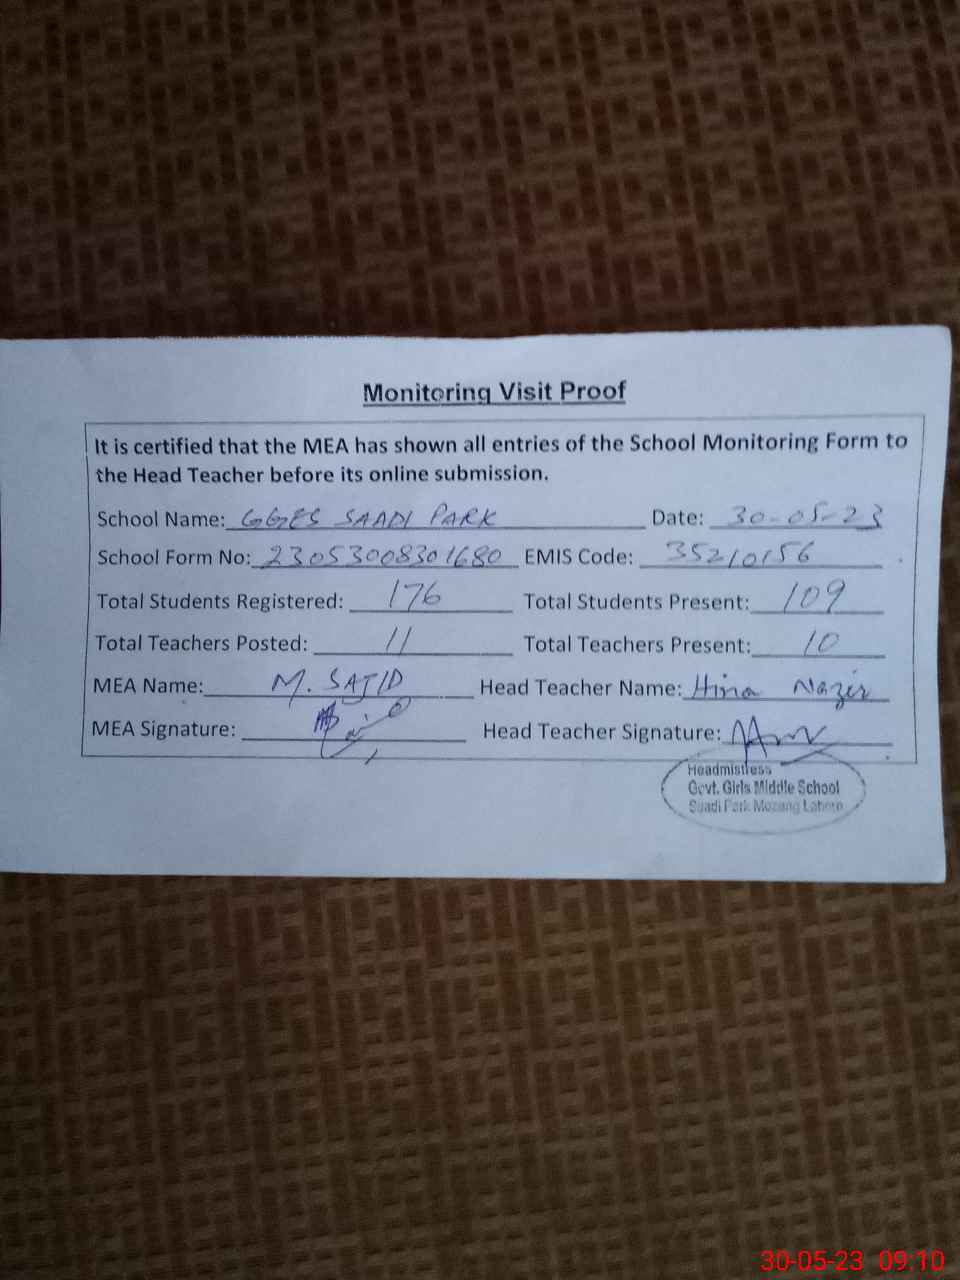 Monitoring Visit Proof
It is certified that the MEA has shown all entries of the School Monitoring Form to
the Head Teacher before its online submission.
School Name: GGES SAADI PARK Date: 30-05-23
School Form No: 23053008301680 EMIS Code: 35210156
Total Students Registered: 176 Total Students Present: 109
Total Teachers Posted: 11 Total Teachers Present: 10
MEA Name: M. SAJID Head Teacher Name: Hina Nazir
MEA Signature: Head Teacher Signature:
Headmistress
Govt. Girls Middle School
Saadi Park Mozang Lahore
30-05-23 09:10